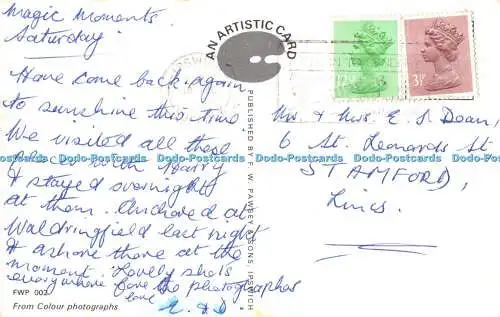 Magic Moments
Saturday
Have come back again
to sunshine this time
We visited all these
places with Harry
& stayed overnight
at them. Anchored at
Waldringfield last night
& ashore there at the
moment. Lovely shots
everywhere for the photographer
love E. & D
FWP 002
From Colour photographs
AN ARTISTIC CARD
PUBLISHED BY F. W. PAWSEY & SONS, IPSWICH
12½
3½
Mr. & Mrs. E. S. Dean,
6 St. Leonards St
STAMFORD,
Lincs.
Dodo-Postcards Dodo-Postcards Dodo-Postcards Dodo-Postcards Dodo-Postcards Dodo-Postcards